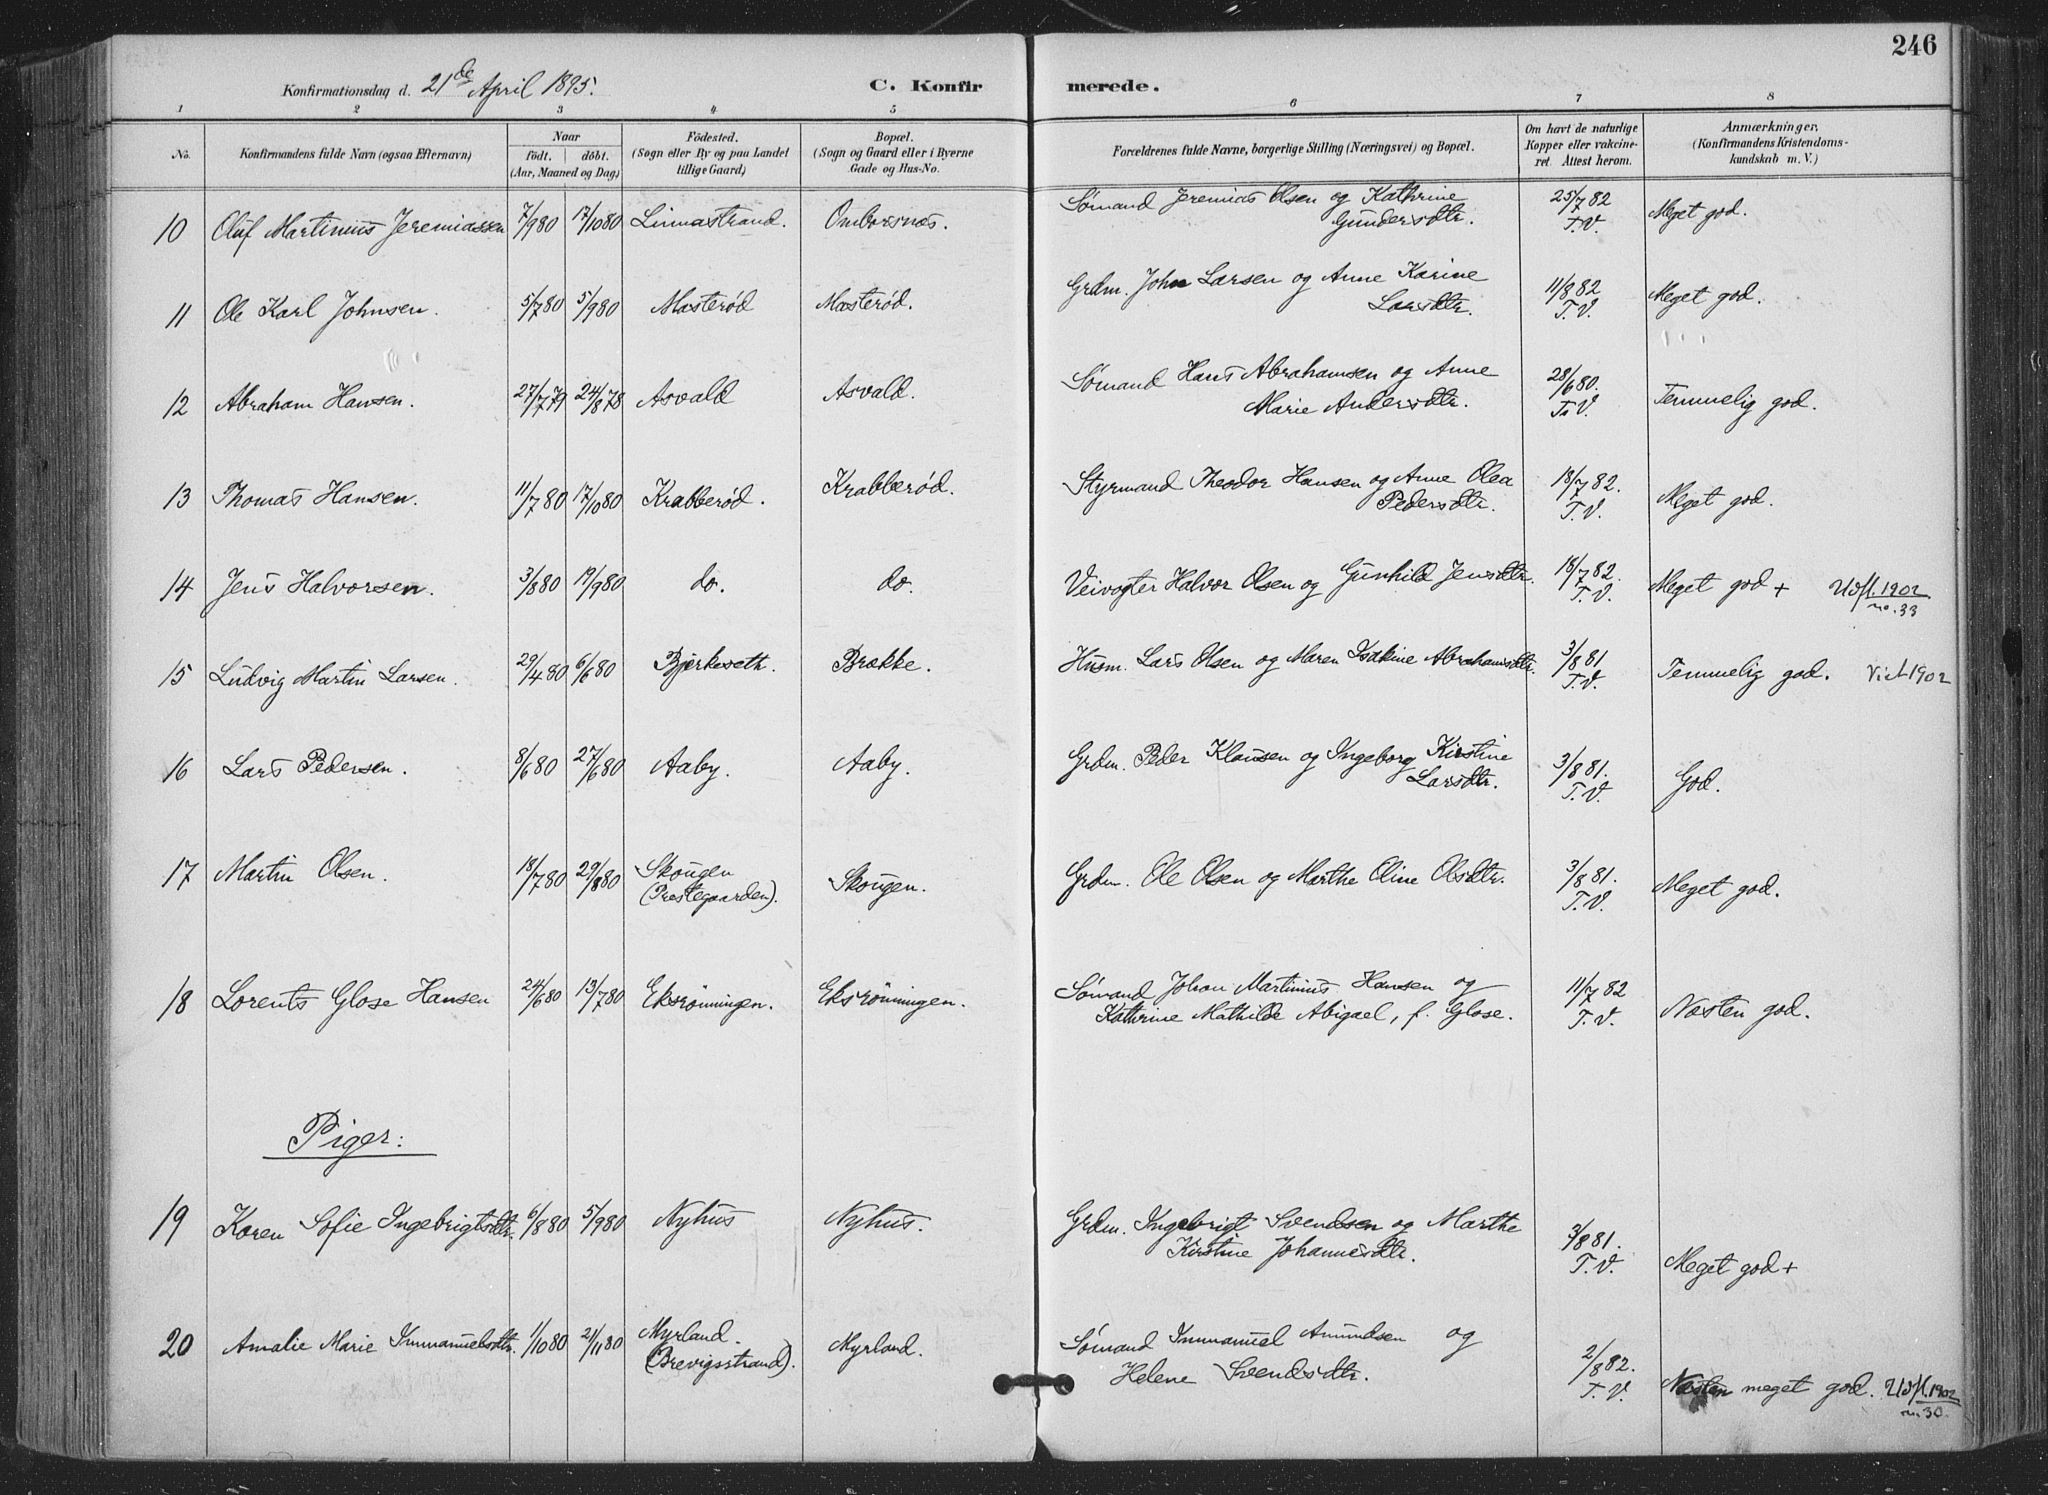 246
Konfirmationsdag d. 21de April 1895. C. Konfir merede.
1 2 3 4 5 6 7 8
No. Konfirmandens fulde Navn (ogsaa Efternavn) Naar Födested. Bopæl. Forældrenes fulde Navne, borgerlige Stilling (Næringsvei) og Bopæl. Om havt de naturlige Anmærkninger.
födt. döbt. (Sogn eller By og paa Landet (Sogn og Gaard eller i Byerne Kopper eller vakcine- (Konfirmandens Kristendoms-
(Aar, Maaned og Dag) tillige Gaard) Gade og Hus-No. ret. Attest herom. kundskab m. V.)
10 Oluf Martinius Jeremiassen 7/9 80 17/10 80 Linnastrand. Omborsnæs. Sømand Jeremias Olsen og Kathrine 25/7 82 Meget god.
Gundersdtr. T.V.
11 Ole Karl Johnsen. 5/7 80 5/9 80 Masterød Masterød. Grdm. John Larsen og Anne Karine 11/8 82 Meget god.
Larsdtr. T.V.
12 Abraham Hansen. 27/7 79 24/8 78 Asvald Asvald. Sømand Hans Abrahamsen og Anne 28/6 80. Temmelig god.
Marie Andersdtr. T.V.
13 Thomas Hansen. 11/7 80 17/10 80 Krabberød. Krabberød. Styrmand Theodor Hansen og Anne Olea 18/7 82. Meget god.
Pedersdtr. T.V.
14 Jens Halvorsen. 3/8 80 19/9 80 do. do. Veivogter Halvor Olsen og Gunhild Jensdtr. 18/7 82. Meget god + Udfl. 1902
T.V. no. 33
15 Ludvig Martin Larsen. 29/4 80 6/6 80 Bjerkeseth. Brække. Husm. Lars Olsen og Maren Isakine Abrahamsdtr. 3/8 81 Temmelig god. Viet 1902
T.V.
16 Lars Pedersen. 8/6 80 27/6 80 Aaby. Aaby. Grdm. Peder Klausen og Ingeborg Kirstine 3/8 81. God.
Larsdtr. T.V.
17 Martin Olsen. 18/7 80 29/8 80 Skougen Skougen. Grdm. Ole Olsen og Marthe Oline Olsdtr. 3/8 81. Meget god.
(Prestegaarden). T.V.
18 Lorents Glose Hansen 24/6 80 13/7 80 Eksrönningen. Eksrönningen. Sømand Johan Martinius Hansen og 11/7 82 Næsten god.
Kathrine Mathilde Abigael, f. Glose. T.V.
Piger:
19 Karen Sofie Ingebrigtsdtr. 6/8 80 5/9 80 Nyhus Nyhus. Grdm. Ingebrigt Svendsen og Marthe 3/8 81. Meget god +
Kirstine Johannesdtr. T.V.
20 Amalie Marie Immanuelsdtr. 1/10 80 21/11 80 Myrland. Myrland. Sømand Immanuel Amundsen og 2/8 82. Næsten meget god. Udfl. 1902
(Brevigsstrand). Helene Svendsdtr. T.V. no. 30.